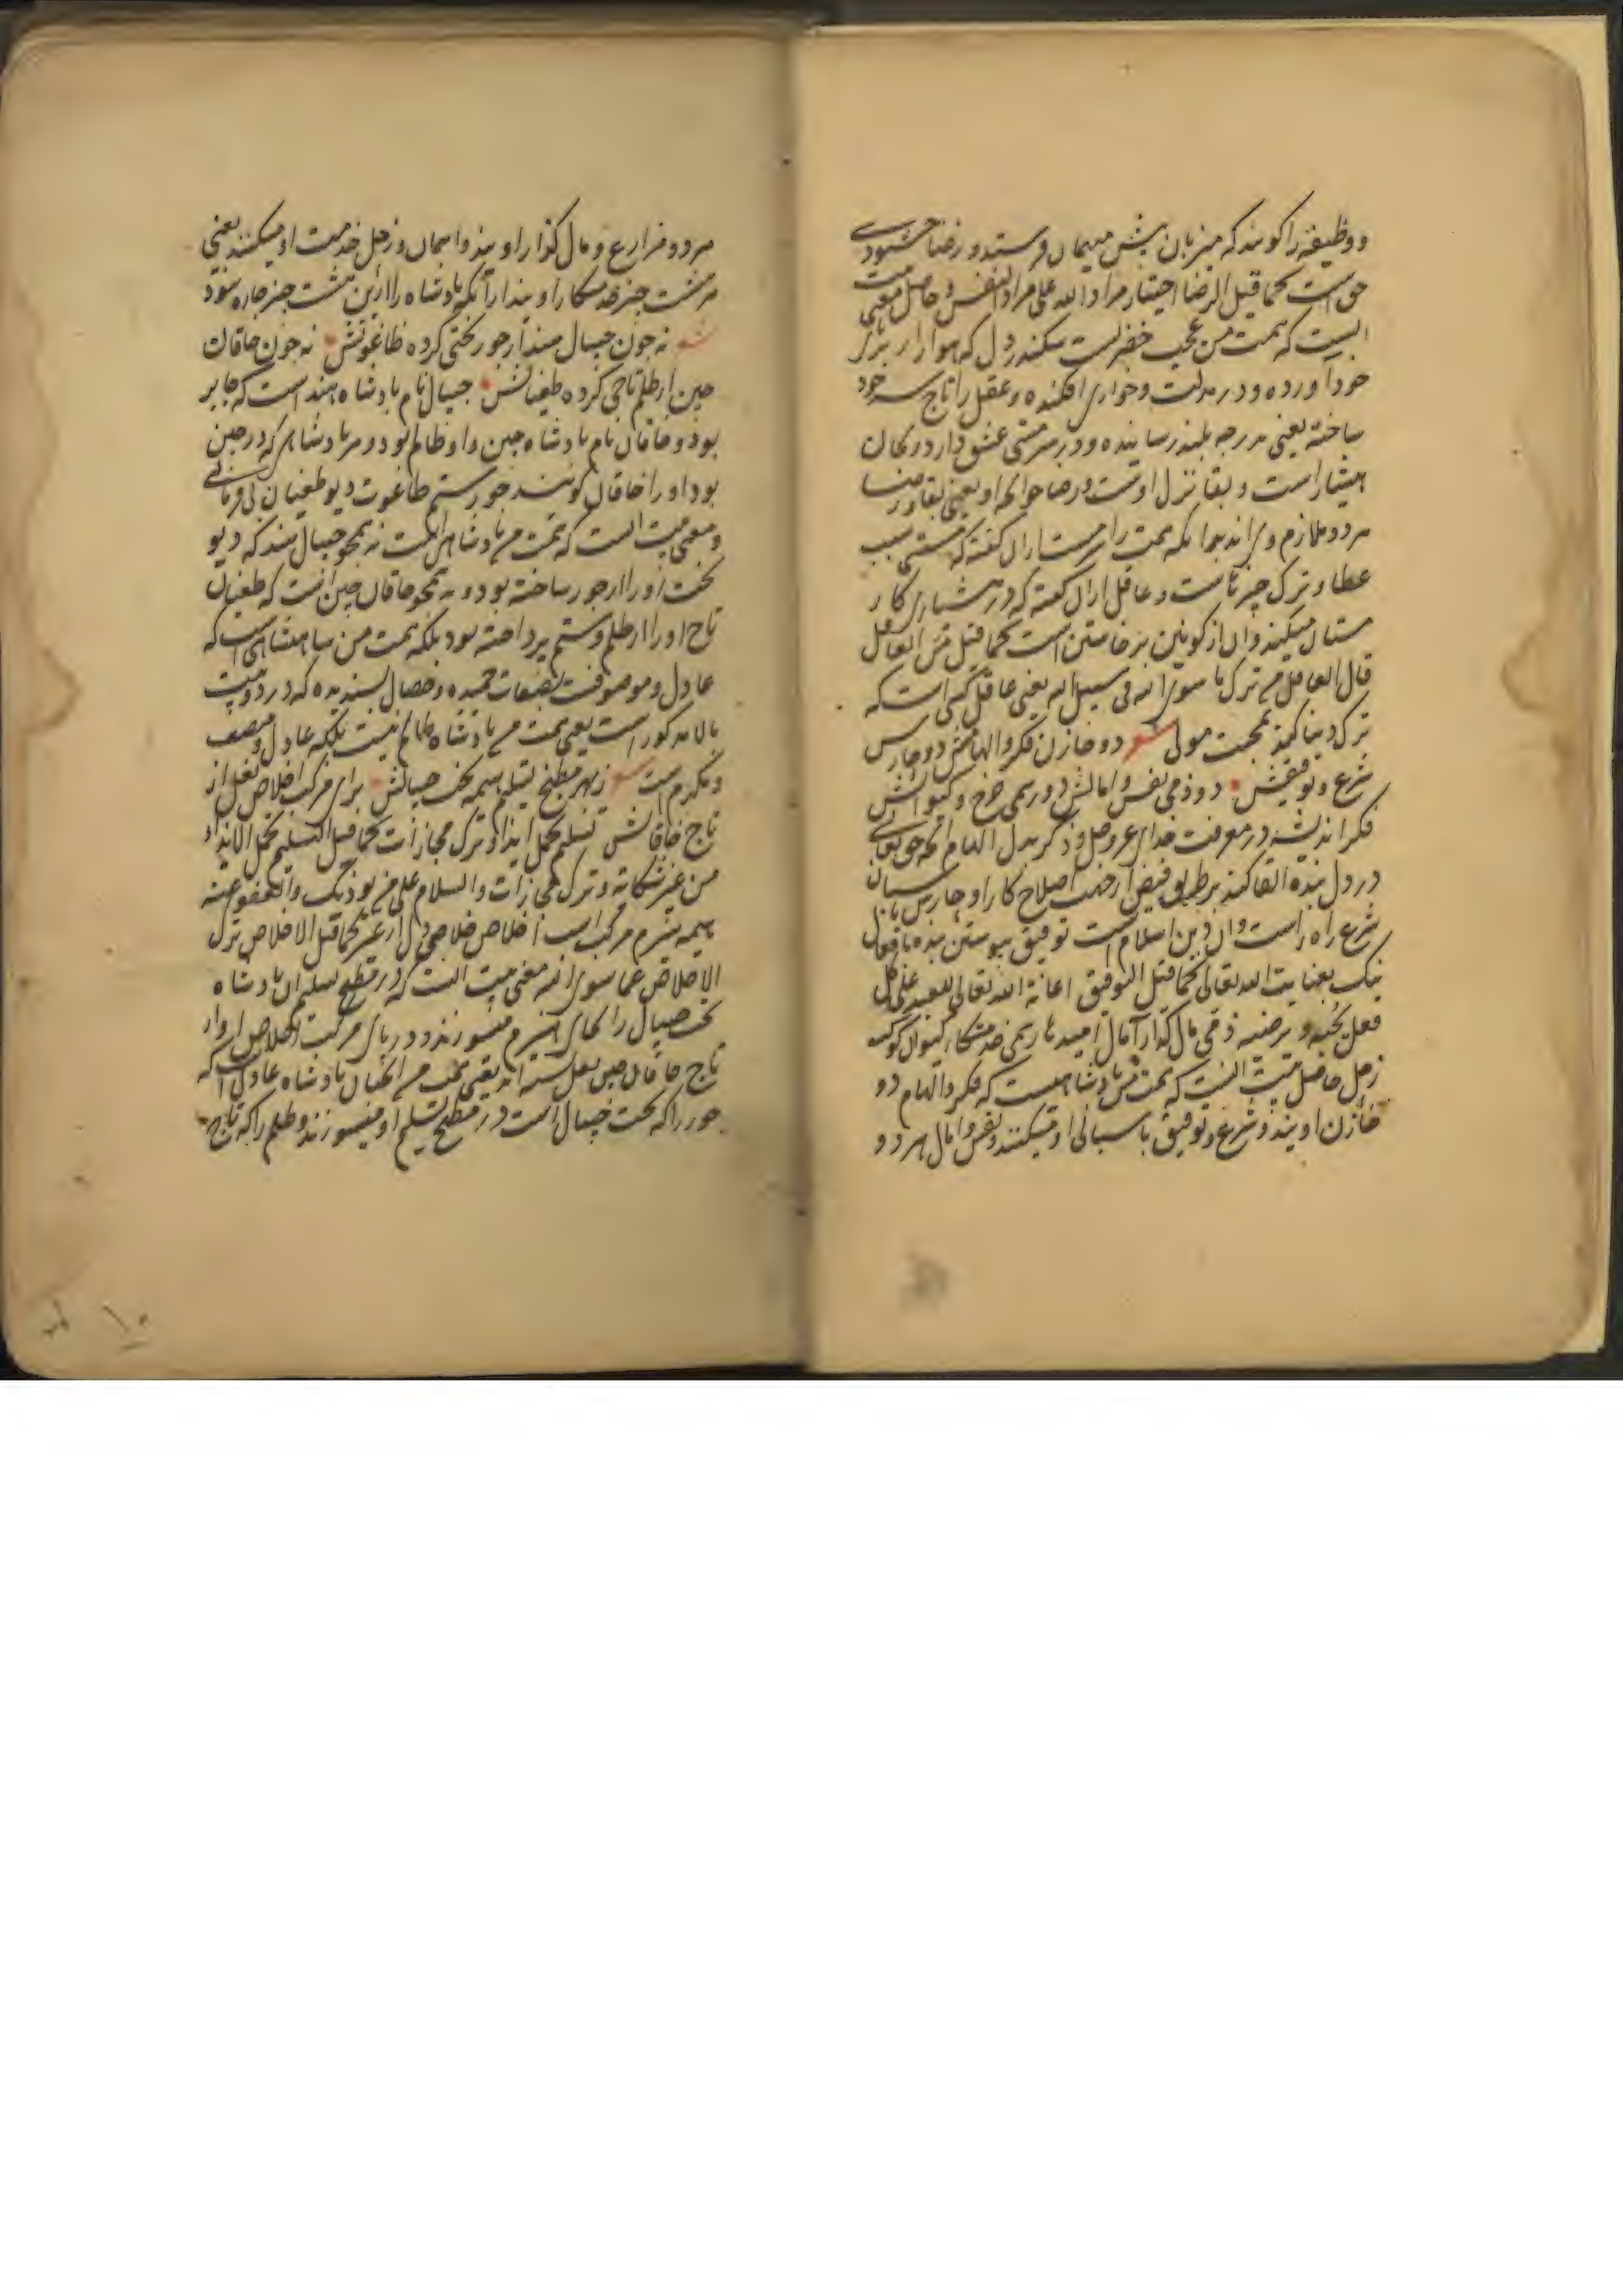 و وظیفه را کویند که میزبان پیش میهمان فرستد و رضا خشنودی
حق است کما قیل الرضا اختیار مراد الله علی مراد النفس و حاصل معنی بیت
اینست که همت من عجب خضریست سکندر دل که هوا را در
خود آورده و در مذلت و خواری افکنده و عقل را تاج سر خود
ساخته یعنی بدرجه بلند رسانیده و در سر مستی عشق دارد و کان
هشیار است و بقا نزل اوست و رضا خوانچه او یعنی بقا و رضا
هر دو ملازم وی اند بدانکه همت را سرمست ازان کفته که مستی سبب
عطا و ترک چیزهاست و عاقل ازان کفته که در هشیاری کار
مستان میکند و ان از کونین برخاستن است کما قیل من العاقل
قال العاقل من ترک ما سوی الله فی سبیل الله یعنی عاقل کسی است که
ترک دنیا کند بمحبت مولی شعر دو خازن فکر و الهامش دو حارس
شرع و توفیقش دو ذمی نفس و امالش دو رسمی چرخ و کیوانش
فکر اندیشه در معرفت خدای عز و جل و ذکر بدل الهام انچه حق تعالی
در دل بنده القا کند بر طریق فیض از جهت اصلاح کار او حارس پاسبان
شرع راه راست و ان دین اسلام است توفیق پیوستن بنده با فعال
نیک بعنایت الله تعالی کما قیل التوفیق اعانة الله تعالی للعبد علی کل
فعل یحبه و یرضیه ذمی مال کذار آمال امیدها رسمی خدمتکار کیوان کوکب
زحل حاصل بیت اینست که همت من پادشاهیست که فکر و الهام دو
خازن اویند و شرع و توفیق پاسبانی او میکنند و نفس و امال هر دو
هر دو مزارع و مال کذار اویند و اسمان و زحل خدمت او میکنند یعنی
خدمتکار اویند از آنکه پادشاه را ازین هشت چیز چاره نبود
شعر نه چون جیپال هند از جور تختی کرده طاغوتش نه چون خاقان
چین از ظلم تاجی کرده طغیانش جیپال نام پادشاه هند است که جابر
بود و خاقان نام پادشاه چین و او ظالم بود و هر پادشاهی که در چین
بود او را خاقان کویند جور ستم طاغوت دیو طغیان بی فرمانی
و معنی بیت انست که همت من پادشاهی است نه همچو جیپال هند که دیو
تخت او را از جور ساخته بود و نه همچو خاقان چین است که طغیان
تاج او را از ظلم و ستم پرداخته بود بلکه همت من شاهنشاهی است که
عادل و موصوفست بصفات حمیده و خصال پسندیده که در دو بیت
بالا مذکور است یعنی همت من پادشاه ظالم نیست بلکه عادل و منصف
و مکرم است شعر ز بهر مطبخ تسلیم هیمه تخت جیپالش برای مرکب اخلاص نعل از
تاج خاقانش تسلیم تحمل ایذا و ترک مجازات کما قیل التسلیم تحمل الایذاء
من غیر شکایة و ترک مجازات والسلام علی من یوذیک والعفو عنه
هیمه هیزم مرکب اسب اخلاص خلاصی دل از غیر کما قیل الاخلاص ترک
الاخلاص عما سوی الله معنی بیت انست که در مطبخ تسلیم ان پادشاه
تخت جیپال را بجای هیزم میسوزند و در پای مرکب اخلاص او از
تاج خاقان چین نعل بسته اند یعنی همت من انچنان پادشاه عادل است که
جور را که تخت جیپال است در مطبخ تسلیم او میسوزند و ظلم را که تاج